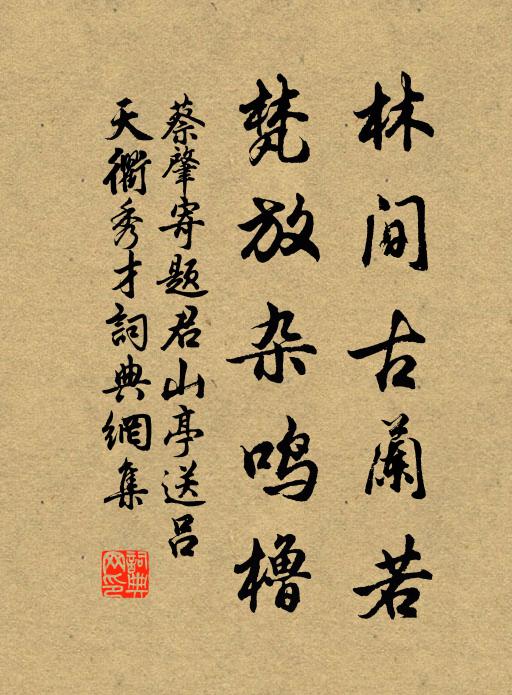 林间古兰若
梵放杂鸣橹
蔡肇寄题君山亭送吕
天衢秀才詞典網集
詞典网印